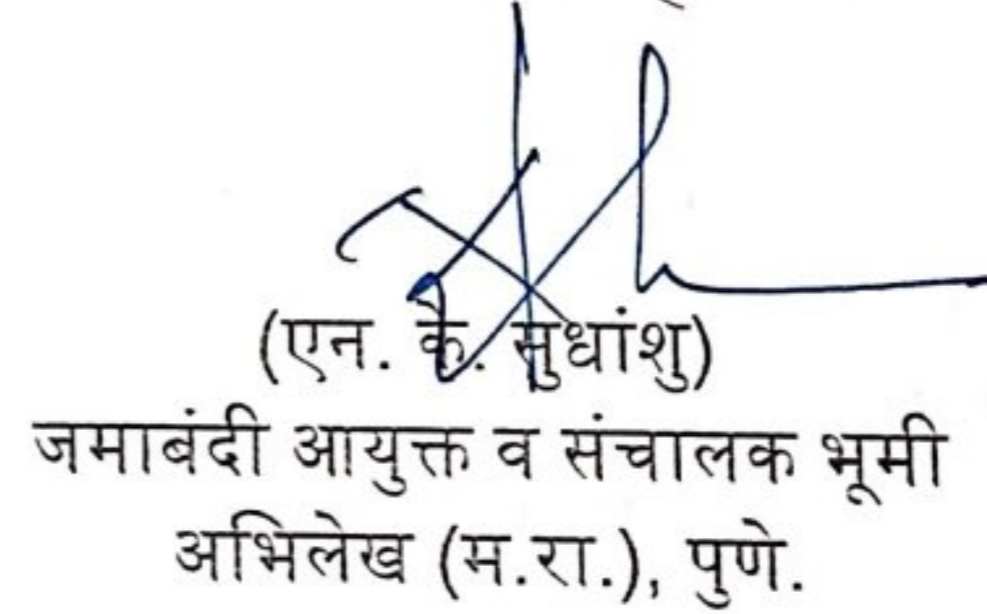 (एन. के. सुधांशु)
जमाबंदी आयुक्त व संचालक भूमी
अभिलेख (म.रा.), पुणे.